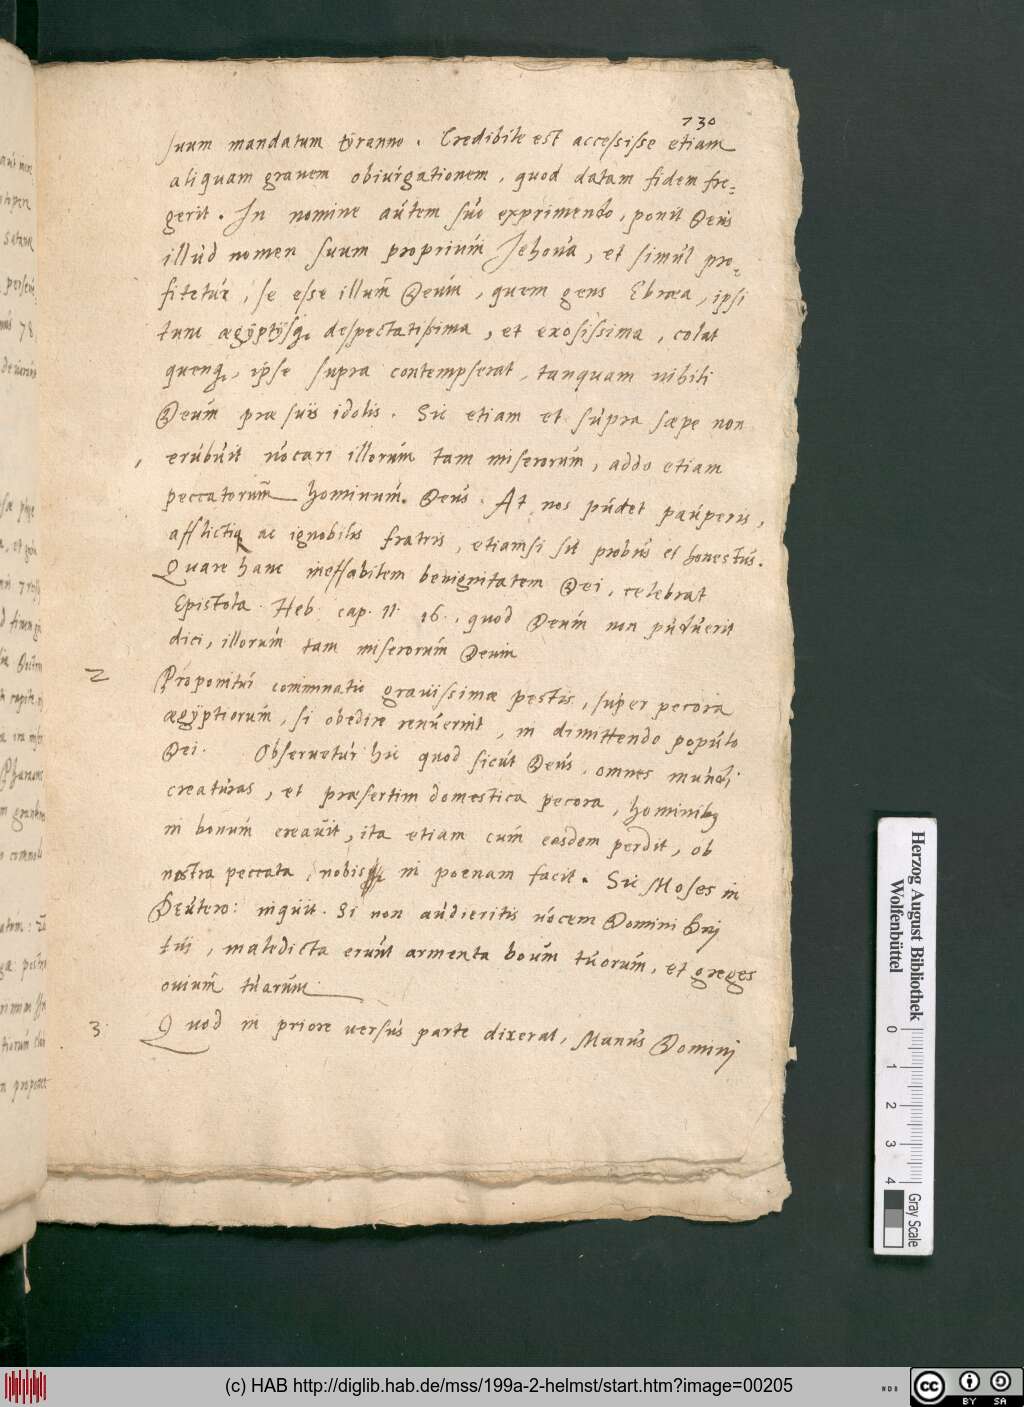 730
suum mandatum tyranno. Credibile est accessisse etiam
aliquam gravem obiurgationem, quod datam fidem fre=
gerit. In nomine autem suo exprimendo, ponit Deus
illud nomen suum proprium Jehova, et simul pro=
fitetur, se esse illum Deum, quem gens Ebræa, ipsi
tunc ægyptijsq; despectatissima, et exosissima, colat
quenq;, ipse supra contempserat, tanquam nihili
Deum præ suis idolis. Sic etiam et supra sæpe non
erubuit vocari illorum tam miserorum, addo etiam
peccatorum hominum. Deus. At nos pudet pauperis,
afflictiq; ac ignobilis fratris, etiamsi sit probus et honestus.
Quare hanc ineffabilem benignitatem Dei, celebrat
Epistola Heb. cap. 11. 16., quod Deum non puduerit
dici, illorum tam miserorum Deum
2 Proponitur comminatio gravissimæ pestis, super pecora
ægyptiorum, si obedire renuerint, in dimittendo populo
Dei. Observetur hic quod sicut Deus, omnes mundi
creaturas, et præsertim domestica pecora, hominibq
in bonum creavit, ita etiam cum easdem perdit, ob
nostra peccata, nobis in poenam facit. Sic Moses in
Deutero: inquit. Si non audieritis vocem Domini Dnj
tui, maledicta erunt armenta boum tuorum, et greges
ovium tuarum.
3. Quod in priore versus parte dixerat, Manus Dominj
Herzog August Bibliothek
Wolfenbüttel
0 1 2 3 4
Gray Scale
(c) HAB http://diglib.hab.de/mss/199a-2-helmst/start.htm?image=00205
cc BY SA